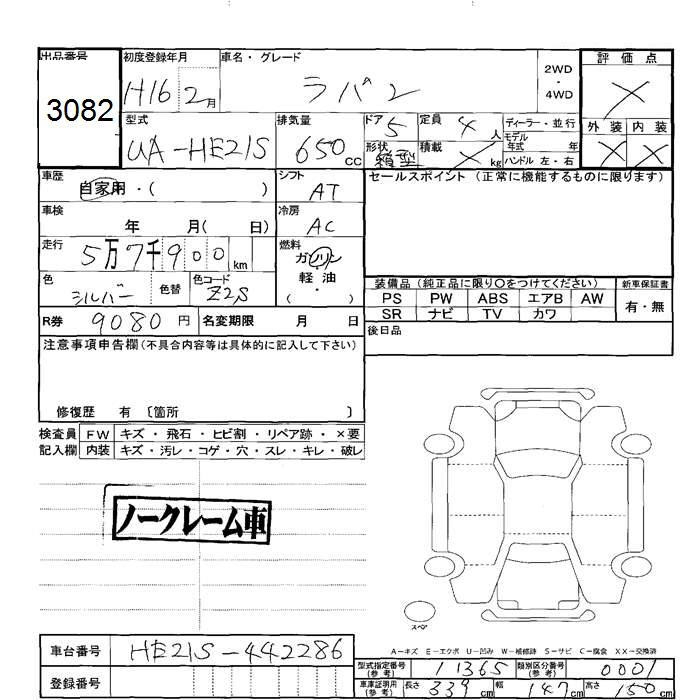 出品番号 初度登録年月 車名・グレード 評価点
3082 H16 2月 ラパン 2WD・4WD X
型式 排気量 ドア 5 定員 4人 ディーラー・並行 外装 内装
UA-HE21S 650cc 形状 箱型 積載 X kg モデル年式 年 X X
ハンドル 左・右
車歴 自家用・( ) シフト AT セールスポイント (正常に機能するものに限ります)
車検 年 月( 日) 冷房 AC
走行 5万7千900km 燃料 ガソリン・軽油・( )
色 シルバー 色替 色コード Z2S
装備品 (純正品に限り○をつけてください) 新車保証書
PS PW ABS エアB AW 有・無
SR ナビ TV カワ
R券 9080円 名変期限 月 日 後日品
注意事項申告欄(不具合内容等は具体的に記入して下さい)
修復歴 有 〔箇所 〕
検査員 FW キズ・飛石・ヒビ割・リペア跡・×要
記入欄 内装 キズ・汚レ・コゲ・穴・スレ・キレ・破レ
ノークレーム車
スペア
A-キズ E-エクボ U-凹み W-補修跡 S-サビ C-腐食 XX-交換済
車台番号 HE21S-442286
型式指定番号(参考) 11365 類別区分番号(参考) 0001
登録番号
車庫証明用(参考) 長さ 339cm 幅 147cm 高さ 150cm